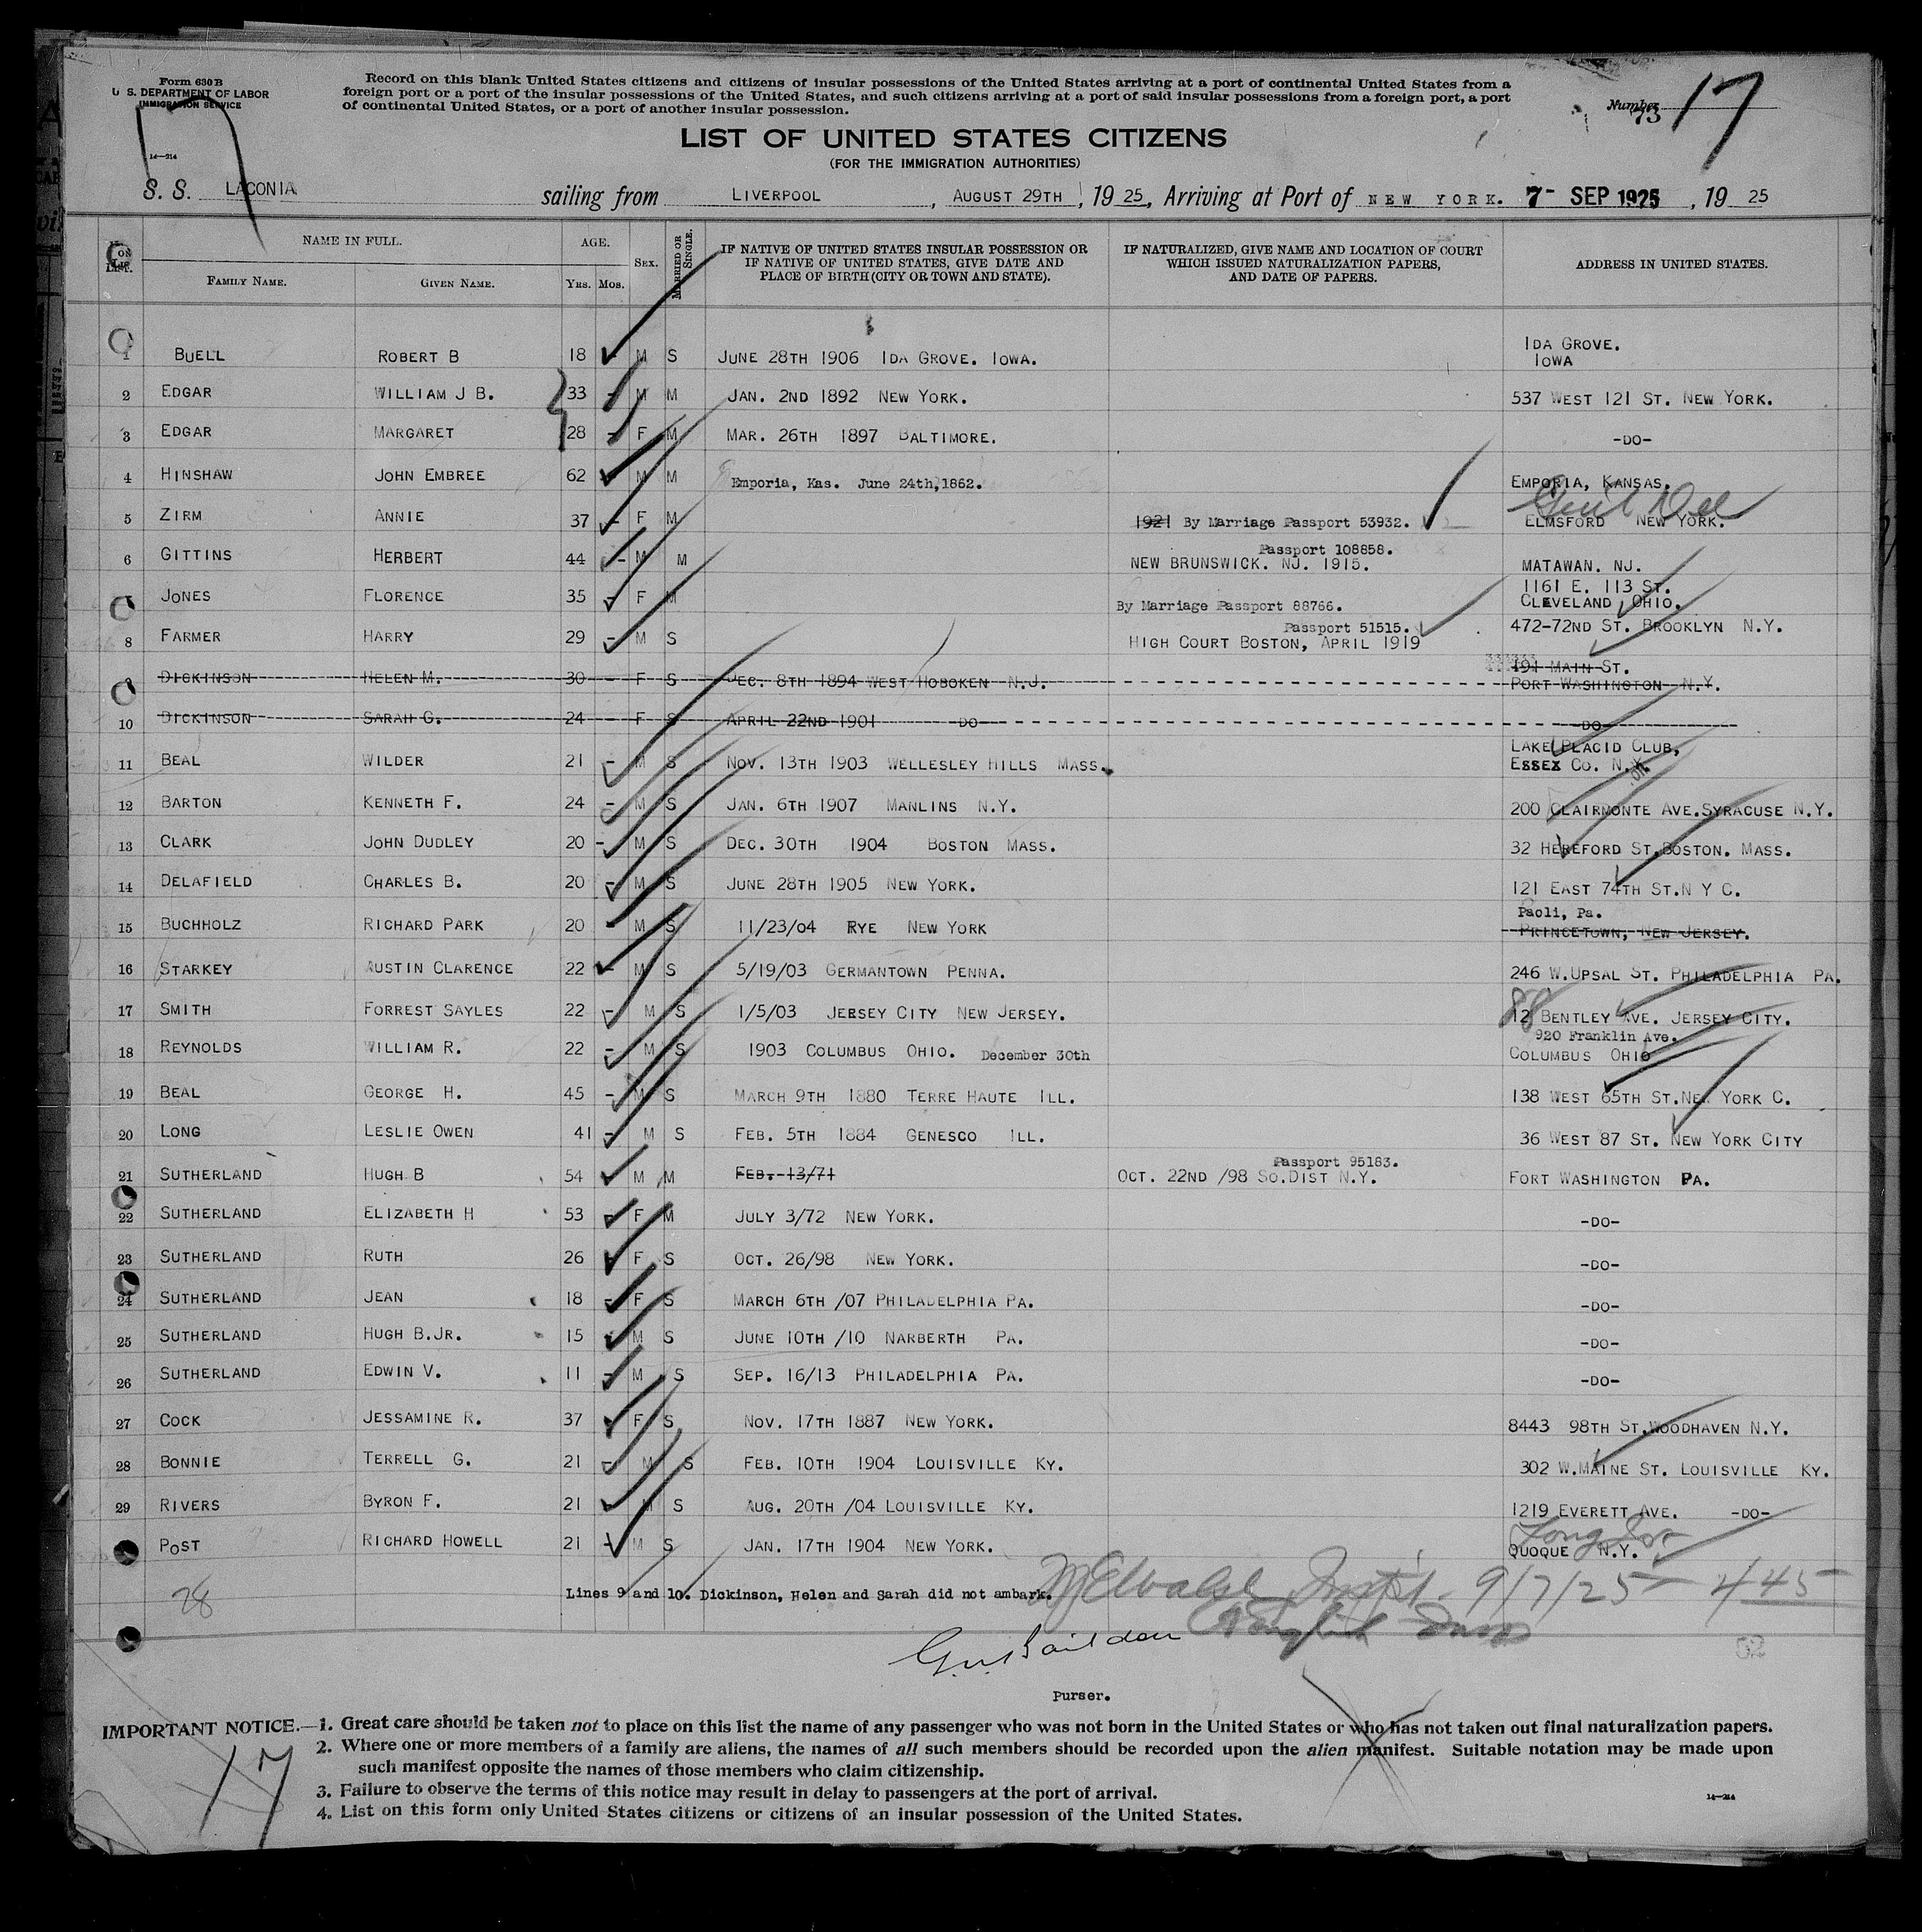 Form 630 B
U. S. DEPARTMENT OF LABOR
IMMIGRATION SERVICE
14—214
Record on this blank United States citizens and citizens of insular possessions of the United States arriving at a port of continental United States from a
foreign port or a port of the insular possessions of the United States, and such citizens arriving at a port of said insular possessions from a foreign port, a port
of continental United States, or a port of another insular possession.
Number 73 17
LIST OF UNITED STATES CITIZENS
(FOR THE IMMIGRATION AUTHORITIES)
S. S. LACONIA sailing from LIVERPOOL, AUGUST 29TH, 1925, Arriving at Port of NEW YORK. 7- SEP 1925, 1925
No. ON LIST. NAME IN FULL. AGE. SEX. MARRIED OR SINGLE. IF NATIVE OF UNITED STATES INSULAR POSSESSION OR IF NATIVE OF UNITED STATES, GIVE DATE AND PLACE OF BIRTH (CITY OR TOWN AND STATE). IF NATURALIZED, GIVE NAME AND LOCATION OF COURT WHICH ISSUED NATURALIZATION PAPERS, AND DATE OF PAPERS. ADDRESS IN UNITED STATES.
FAMILY NAME. GIVEN NAME. YRS. MOS.
1 BUELL ROBERT B 18 - M S JUNE 28TH 1906 IDA GROVE. IOWA. IDA GROVE. IOWA
2 EDGAR WILLIAM J B. 33 - M M JAN. 2ND 1892 NEW YORK. 537 WEST 121 ST. NEW YORK.
3 EDGAR MARGARET 28 - F M MAR. 26TH 1897 BALTIMORE. -DO-
4 HINSHAW JOHN EMBREE 62 - M M Emporia, Kas. June 24th, 1862. EMPORIA, KANSAS.
5 ZIRM ANNIE 37 - F M 1921 By Marriage Passport 53932. Genl Del ELMSFORD NEW YORK.
6 GITTINS HERBERT 44 - M M Passport 108858. NEW BRUNSWICK. NJ. 1915. MATAWAN. NJ.
7 JONES FLORENCE 35 - F M By Marriage Passport 88766. 1161 E. 113 ST. CLEVELAND, OHIO.
8 FARMER HARRY 29 - M S Passport 51515. HIGH COURT BOSTON, APRIL 1919 472-72ND ST. BROOKLYN N.Y.
9 DICKINSON HELEN M. 30 - F S DEC. 8TH 1894 WEST HOBOKEN N.J. 191 MAIN ST. PORT WASHINGTON N.Y.
10 DICKINSON SARAH G. 24 - F S APRIL 22ND 1901 DO -DO-
11 BEAL WILDER 21 - M S NOV. 13TH 1903 WELLESLEY HILLS MASS. LAKE PLACID CLUB, ESSEX CO. N.Y.
12 BARTON KENNETH F. 24 - M S JAN. 6TH 1907 MANLINS N.Y. 200 CLAIRMONTE AVE. SYRACUSE N.Y.
13 CLARK JOHN DUDLEY 20 - M S DEC. 30TH 1904 BOSTON MASS. 32 HEREFORD ST. BOSTON. MASS.
14 DELAFIELD CHARLES B. 20 - M S JUNE 28TH 1905 NEW YORK. 121 EAST 74TH ST. N Y C.
15 BUCHHOLZ RICHARD PARK 20 - M S 11/23/04 RYE NEW YORK Paoli, Pa. PRINCETOWN, NEW JERSEY.
16 STARKEY AUSTIN CLARENCE 22 - M S 5/19/03 GERMANTOWN PENNA. 246 W. UPSAL ST. PHILADELPHIA PA.
17 SMITH FORREST SAYLES 22 - M S 1/5/03 JERSEY CITY NEW JERSEY. 88 12 BENTLEY AVE. JERSEY CITY.
18 REYNOLDS WILLIAM R. 22 - M S 1903 COLUMBUS OHIO. December 30th 920 Franklin Ave. COLUMBUS OHIO
19 BEAL GEORGE H. 45 - M S MARCH 9TH 1880 TERRE HAUTE ILL. 138 WEST 65TH ST. NEW YORK C.
20 LONG LESLIE OWEN 41 - M S FEB. 5TH 1884 GENESCO ILL. 36 WEST 87 ST. NEW YORK CITY
21 SUTHERLAND HUGH B 54 M M FEB. 13/71 Passport 95183. OCT. 22ND /98 SO. DIST N.Y. FORT WASHINGTON PA.
22 SUTHERLAND ELIZABETH H 53 - F M JULY 3/72 NEW YORK. -DO-
23 SUTHERLAND RUTH 26 - F S OCT. 26/98 NEW YORK. -DO-
24 SUTHERLAND JEAN 18 - F S MARCH 6TH /07 PHILADELPHIA PA. -DO-
25 SUTHERLAND HUGH B. JR. 15 - M S JUNE 10TH /10 NARBERTH PA. -DO-
26 SUTHERLAND EDWIN V. 11 - M S SEP. 16/13 PHILADELPHIA PA. -DO-
27 COCK JESSAMINE R. 37 - F S NOV. 17TH 1887 NEW YORK. 8443 98TH ST. WOODHAVEN N.Y.
28 BONNIE TERRELL G. 21 - M S FEB. 10TH 1904 LOUISVILLE KY. 302 W. MAINE ST. LOUISVILLE KY.
29 RIVERS BYRON F. 21 - M S AUG. 20TH /04 LOUISVILLE KY. 1219 EVERETT AVE. -DO-
POST RICHARD HOWELL 21 - M S JAN. 17TH 1904 NEW YORK. QUOQUE N.Y.
28 Lines 9 and 10. Dickinson, Helen and Sarah did not ambark. 9/7/25 445
Purser.
IMPORTANT NOTICE.—1. Great care should be taken not to place on this list the name of any passenger who was not born in the United States or who has not taken out final naturalization papers.
2. Where one or more members of a family are aliens, the names of all such members should be recorded upon the alien manifest. Suitable notation may be made upon
such manifest opposite the names of those members who claim citizenship.
3. Failure to observe the terms of this notice may result in delay to passengers at the port of arrival.
4. List on this form only United States citizens or citizens of an insular possession of the United States.
17
14—214